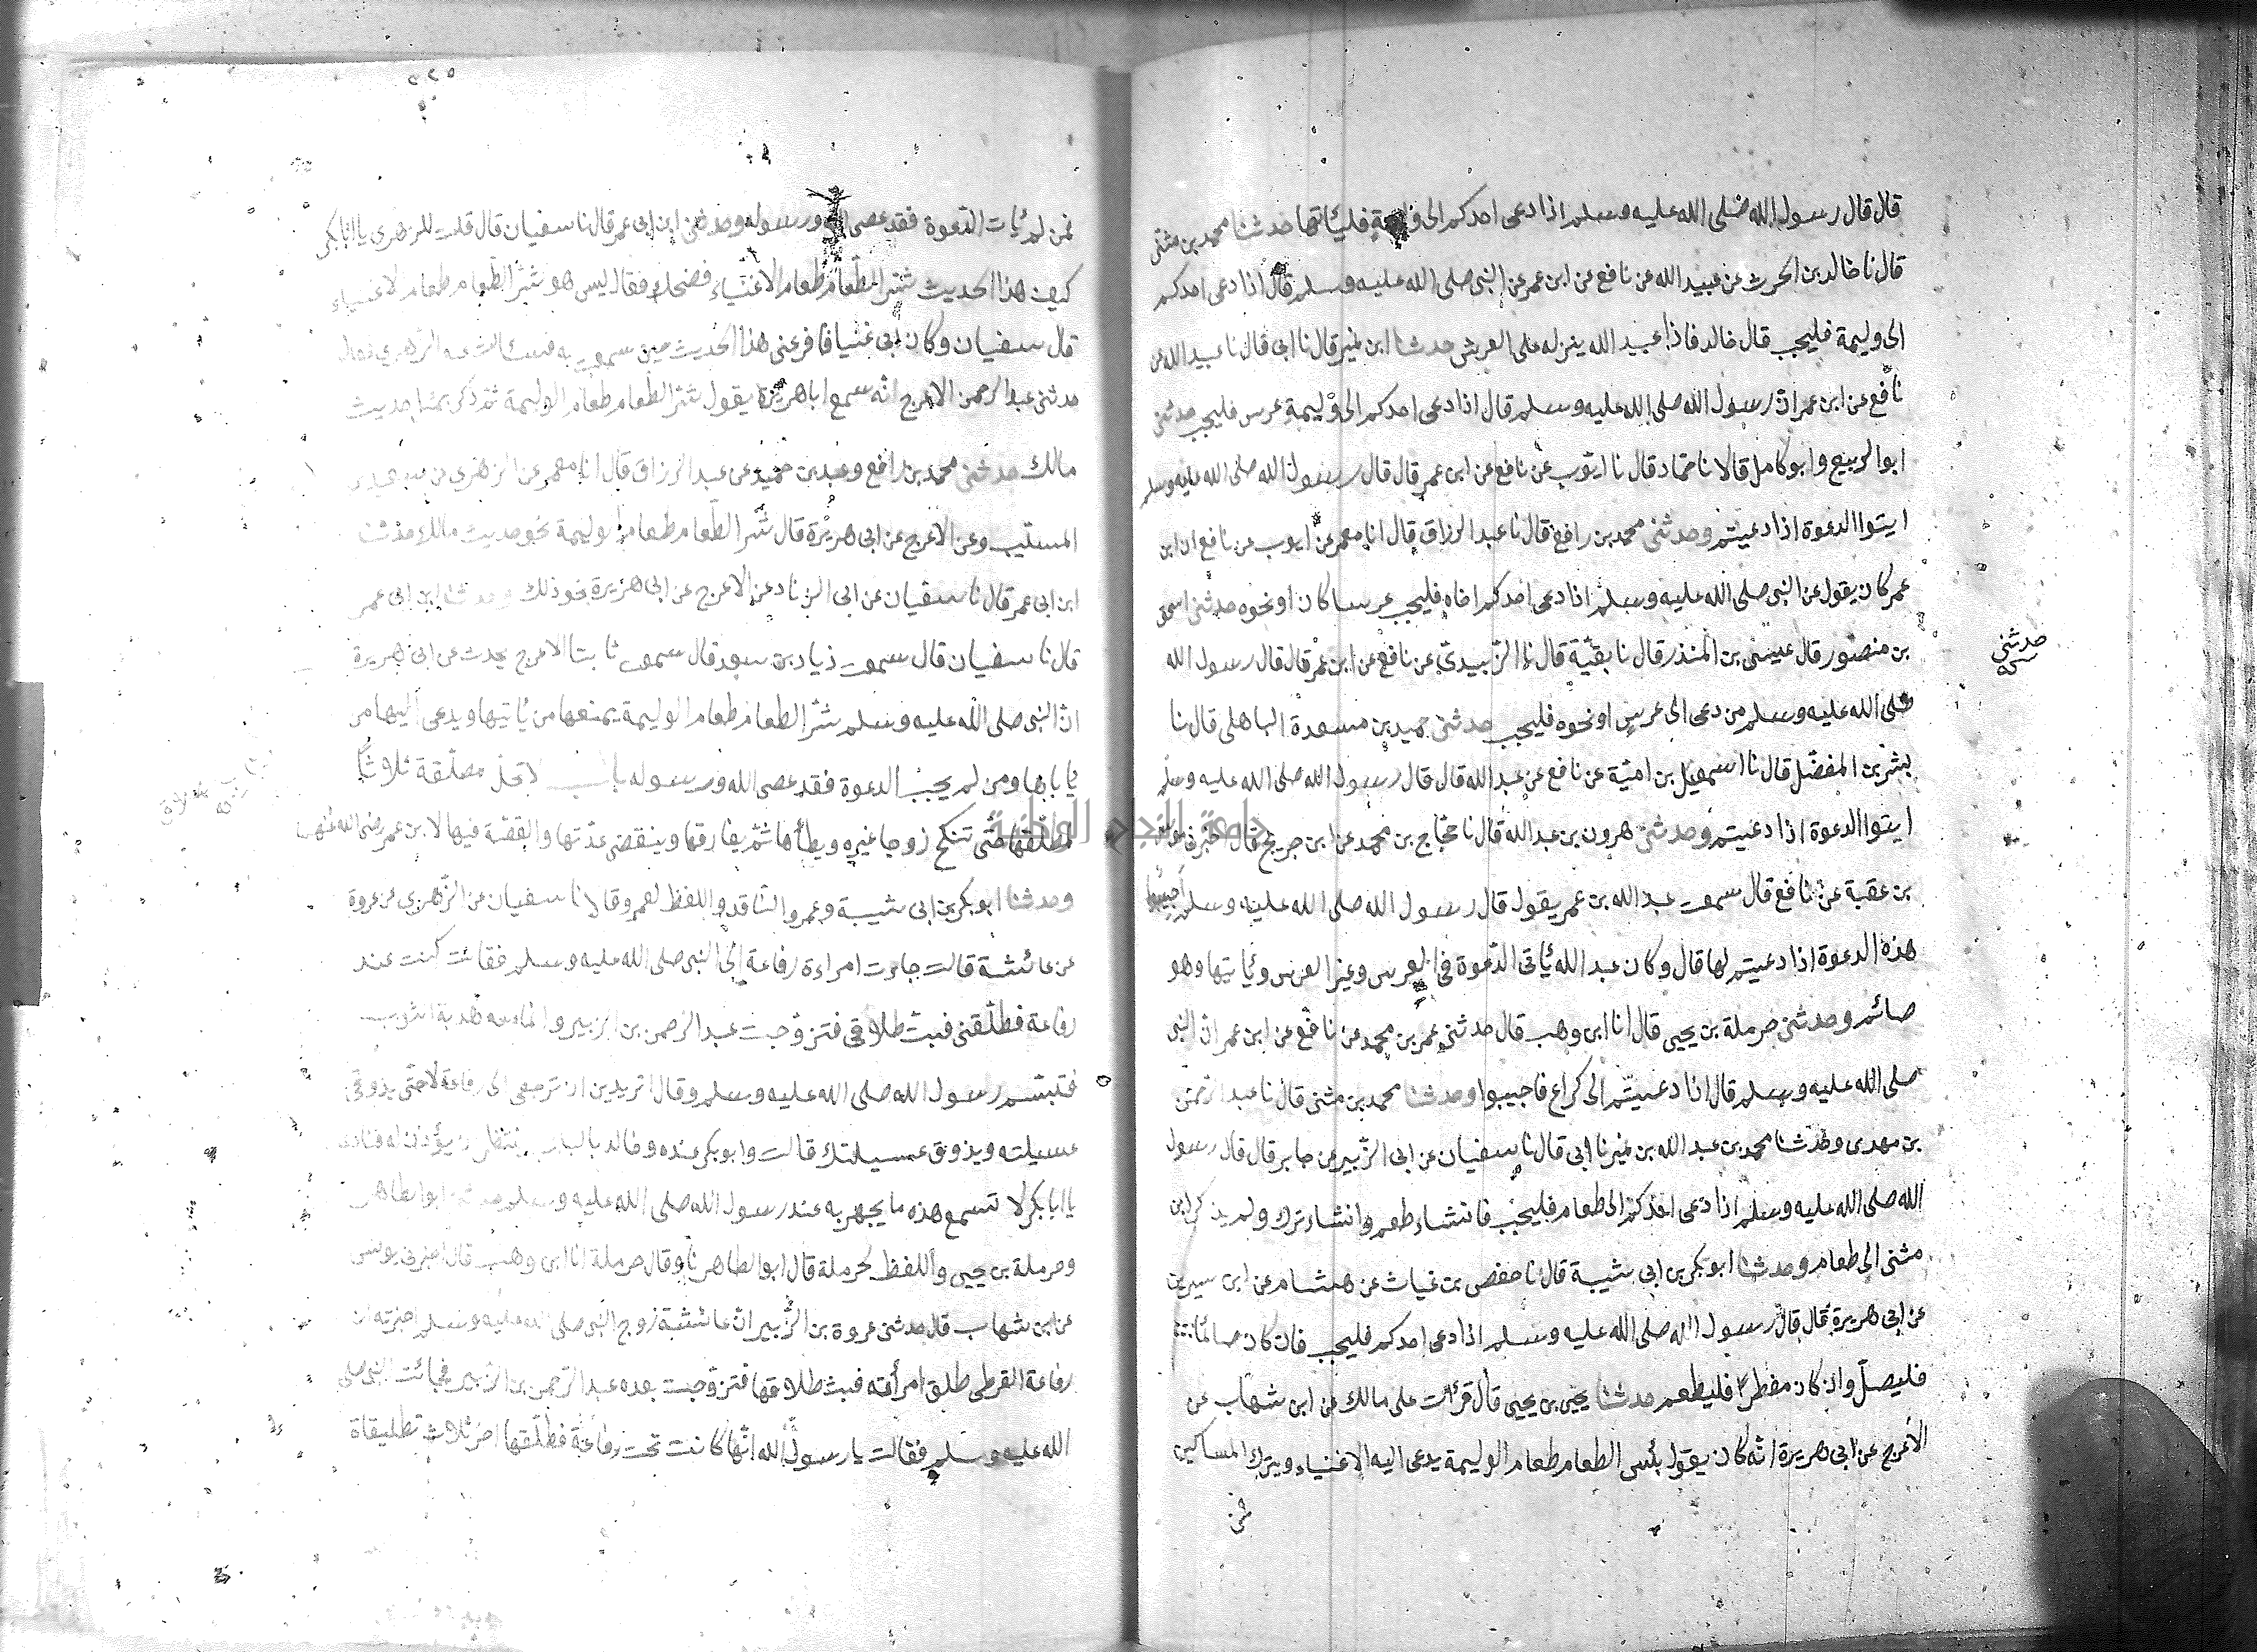 قال قال رسول الله صلى الله عليه وسلم اذا دعى احدكم الى فليئاتها حدثنا محمد بن مثنى
قال نا خالد بن الحرث عن عبيد الله عن نافع عن ابن عمر عن النبى صلى الله عليه وسلم قال اذا دعى احدكم
الى وليمة فليجب قال خالد فاذا عبيد الله ينزله على العرش حدثنا ابن نمير قال نا ابى قال نا عبيد الله عن
نافع عن ابن عمر ان رسول الله صلى الله عليه وسلم قال اذا دعى احدكم الى وليمة عرس فليجب حدثنى
ابو الربيع وابو كامل قالا نا حماد قال نا ايوب عن نافع عن ابن عمر قال قال رسول الله صلى الله عليه وسلم
ايتوا الدعوة اذا دعيتم وحدثنى محمد بن رافع قال نا عبد الرزاق قال انا معمر عن ايوب عن نافع ان ابن
عمر كان يقول عن النبى صلى الله عليه وسلم اذا دعى احدكم اخاه فليجب عرسا كان او نحوه حدثنى اسحق
حدثنى
بن منصور قال عيسى بن المنذر قال نا بقية قال نا الزبيدى عن نافع عن ابن عمر قال قال رسول الله
صلى الله عليه وسلم من دعى الى عرس او نحوه فليجب حدثنى حميد بن مسعدة الباهلى قال نا
بشر بن المفضل قال نا اسمعيل بن امية عن نافع عن عبد الله قال قال رسول الله صلى الله عليه وسلم
ايتوا الدعوة اذا دعيتم وحدثنى هرون بن عبد الله قال نا حجاج بن محمد عن ابن جريج قال اخبرنى موسى
بن عقبة عن نافع قال سمعت عبد الله بن عمر يقول قال رسول الله صلى الله عليه وسلم اجيبوا
هذه الدعوة اذا دعيتم لها قال وكان عبد الله يأتى الدعوة فى العرس وغير العرس ويأتيها وهو
صائم وحدثنى حرملة بن يحيى قال انا ابن وهب قال حدثنى عمر بن محمد عن نافع عن ابن عمر ان النبى
صلى الله عليه وسلم قال اذا دعيتم الى كراع فاجيبوا وحدثنا محمد بن مثنى قال نا عبد الرحمن
بن مهدى وحدثنا محمد بن عبد الله بن نمير نا ابى قال نا سفيان عن ابى الزبير عن جابر قال قال رسول
الله صلى الله عليه وسلم اذا دعى احدكم الى طعام فليجب فانشاء طعم وانشاء ترك ولم يذكر ابن
مثنى الى طعام وحدثنا ابو بكر بن ابى شيبة قال نا حفص بن غياث عن هشام عن ابن سيرين
عن ابى هريرة قال قال رسول الله صلى الله عليه وسلم اذا دعى احدكم فليجب فان كان صائما
فليصل وان كان مفطرا فليطعم حدثنا يحيى بن يحيى قال قرأت على مالك عن ابن شهاب عن
الاعرج عن ابى هريرة انه كان يقول بئس الطعام طعام الوليمة يدعى اليه الاغنياء ويترك المساكين
فمن
٢٢٥
فمن لم يأت الدعوة فقد عصى الله ورسوله وحدثنى ابن ابى عمر قال نا سفيان قال قلت للزهرى يا ابا بكر
كيف هذا الحديث شر الطعام طعام الاغنياء فضحك فقال ليس هو شر الطعام طعام الاغنياء
قال سفيان وكان ابى غنيا فافزعنى هذا الحديث حين سمعت به فسالت عنه الزهرى فقال
حدثنى عبد الرحمن الاعرج انه سمع ابا هريرة يقول شر الطعام طعام الوليمة ثم ذكر بمثل حديث
مالك حدثنى محمد بن رافع وعبد بن حميد عن عبد الرزاق قال انا معمر عن الزهرى عن سعيد بن
المسيب وعن الاعرج عن ابى هريرة قال شر الطعام طعام الوليمة نحو حديث مالك
ابن ابى عمر قال نا سفيان عن ابى الزناد عن الاعرج عن ابى هريرة نحو ذلك وحدثنا ابن ابى عمر
قال نا سفيان قال سمعت زياد بن سعد قال سمعت ثابتا الاعرج يحدث عن ابى هريرة
ان النبى صلى الله عليه وسلم شر الطعام طعام الوليمة يمنعها من يأتيها ويدعى اليها من
يأباها ومن لم يجب الدعوة فقد عصى الله ورسوله باب لا تحل مطلقة ثلاثا
لمطلقها حتى تنكح زوجا غيره ويطأها ثم يفارقها وينقضى عدتها والقصة فيها لابن عمر رضى الله عنهما
وحدثنا ابو بكر بن ابى شيبة وعمرو الناقد واللفظ لعمرو قالا نا سفيان عن الزهرى عن عروة
عن عائشة قالت جاءت امراءة رفاعة الى النبى صلى الله عليه وسلم فقالت كنت عند
رفاعة فطلقنى فبت طلاقى فتزوجت عبد الرحمن بن الزبير وانما معه هدبة الثوب
فتبسم رسول الله صلى الله عليه وسلم وقال اتريدين ان ترجعى الى رفاعة لا حتى يذوقى
عسيلته ويذوق عسيلتك قالت وابو بكر عنده وخالد بالباب ينتظر ان يؤذن له فنادى
يا ابا بكر لا تسمع هذه ما يجهر به عند رسول الله صلى الله عليه وسلم حدثنى ابو الطاهر
وحرملة بن يحيى واللفظ لحرملة قال ابو الطاهر نا وقال حرملة انا ابن وهب قال اخبرنى يونس
عن ابن شهاب قال حدثنى عروة بن الزبير ان عائشة زوج النبى صلى الله عليه وسلم اخبرته ان
رفاعة القرظى طلق امرأته فبت طلاقها فتزوجت بعده عبد الرحمن بن الزبير فجائت النبى صلى
الله عليه وسلم فقالت يا رسول الله انها كانت تحت رفاعة فطلقها اخر ثلاث تطليقاة